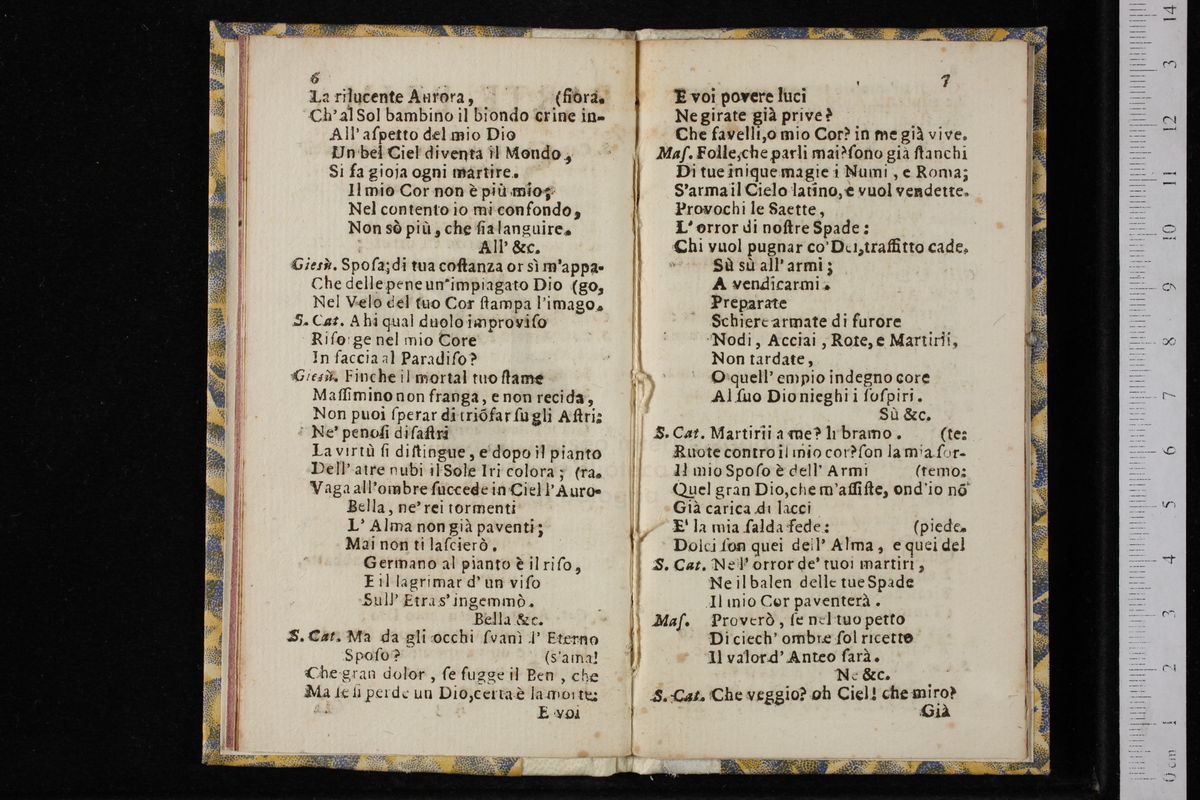 6
La rilucente Aurora, (fiora.
Ch'al Sol bambino il biondo crine in-
All' aſpetto del mio Dio
Un bel Ciel diventa il Mondo,
Si fa gioja ogni martire.
Il mio Cor non è più mio;
Nel contento io mi confondo,
Non sò più, che ſia languire.
All' &c.
Giesù. Spoſa; di tua coſtanza or sì m'appa-
Che delle pene un' impiagato Dio (go,
Nel Velo del tuo Cor ſtampa l'imago.
S. Cat. Ahi qual duolo improviſo
Riſorge nel mio Core
In faccia al Paradiſo?
Giesù. Finche il mortal tuo ſtame
Maſſimino non franga, e non recida,
Non puoi ſperar di triōfar ſu gli Aſtri:
Ne' penoſi diſaſtri
La virtù ſi diſtingue, e dopo il pianto
Dell' atre nubi il Sole Iri colora; (ra.
Vaga all'ombre ſuccede in Ciel l'Auro-
Bella, ne' rei tormenti
L' Alma non già paventi;
Mai non ti laſcierò.
Germano al pianto è il riſo,
E il lagrimar d' un viſo
Sull' Etra s' ingemmò.
Bella &c.
S. Cat. Ma da gli occhi ſvanì l' Eterno
Spoſo? (s'ama!
Che gran dolor, ſe fugge il Ben, che
Ma ſe ſi perde un Dio, certa è la morte:
E voi
7
E voi povere luci
Ne girate già prive?
Che favelli, o mio Cor? in me già vive.
Maſ. Folle, che parli mai? ſono già ſtanchi
Di tue inique magie i Numi, e Roma;
S'arma il Cielo latino, e vuol vendette.
Provochi le Saette,
L' orror di noſtre Spade:
Chi vuol pugnar co' Dei, traffitto cade.
Sù sù all' armi;
A vendicarmi.
Preparate
Schiere armate di furore
Nodi, Acciai, Rote, e Martirii,
Non tardate,
O quell' empio indegno core
Al ſuo Dio nieghi i ſoſpiri.
Sù &c.
S. Cat. Martirii a me? li bramo. (te:
Ruote contro il mio cor? ſon la mia ſor-
Il mio Spoſo è dell' Armi (temo:
Quel gran Dio, che m'aſſiſte, ond'io nō
Già carica di lacci
E' la mia ſalda fede: (piede.
Dolci ſon quei dell' Alma, e quei del
S. Cat. Ne l' orror de' tuoi martiri,
Ne il balen delle tue Spade
Il mio Cor paventerà.
Maſ. Proverò, ſe nel tuo petto
Di ciech' ombre ſol ricetto
Il valor d' Anteo ſarà.
Ne &c.
S. Cat. Che veggio? oh Ciel! che miro?
Già
0 cm 1 2 3 4 5 6 7 8 9 10 11 12 3 14